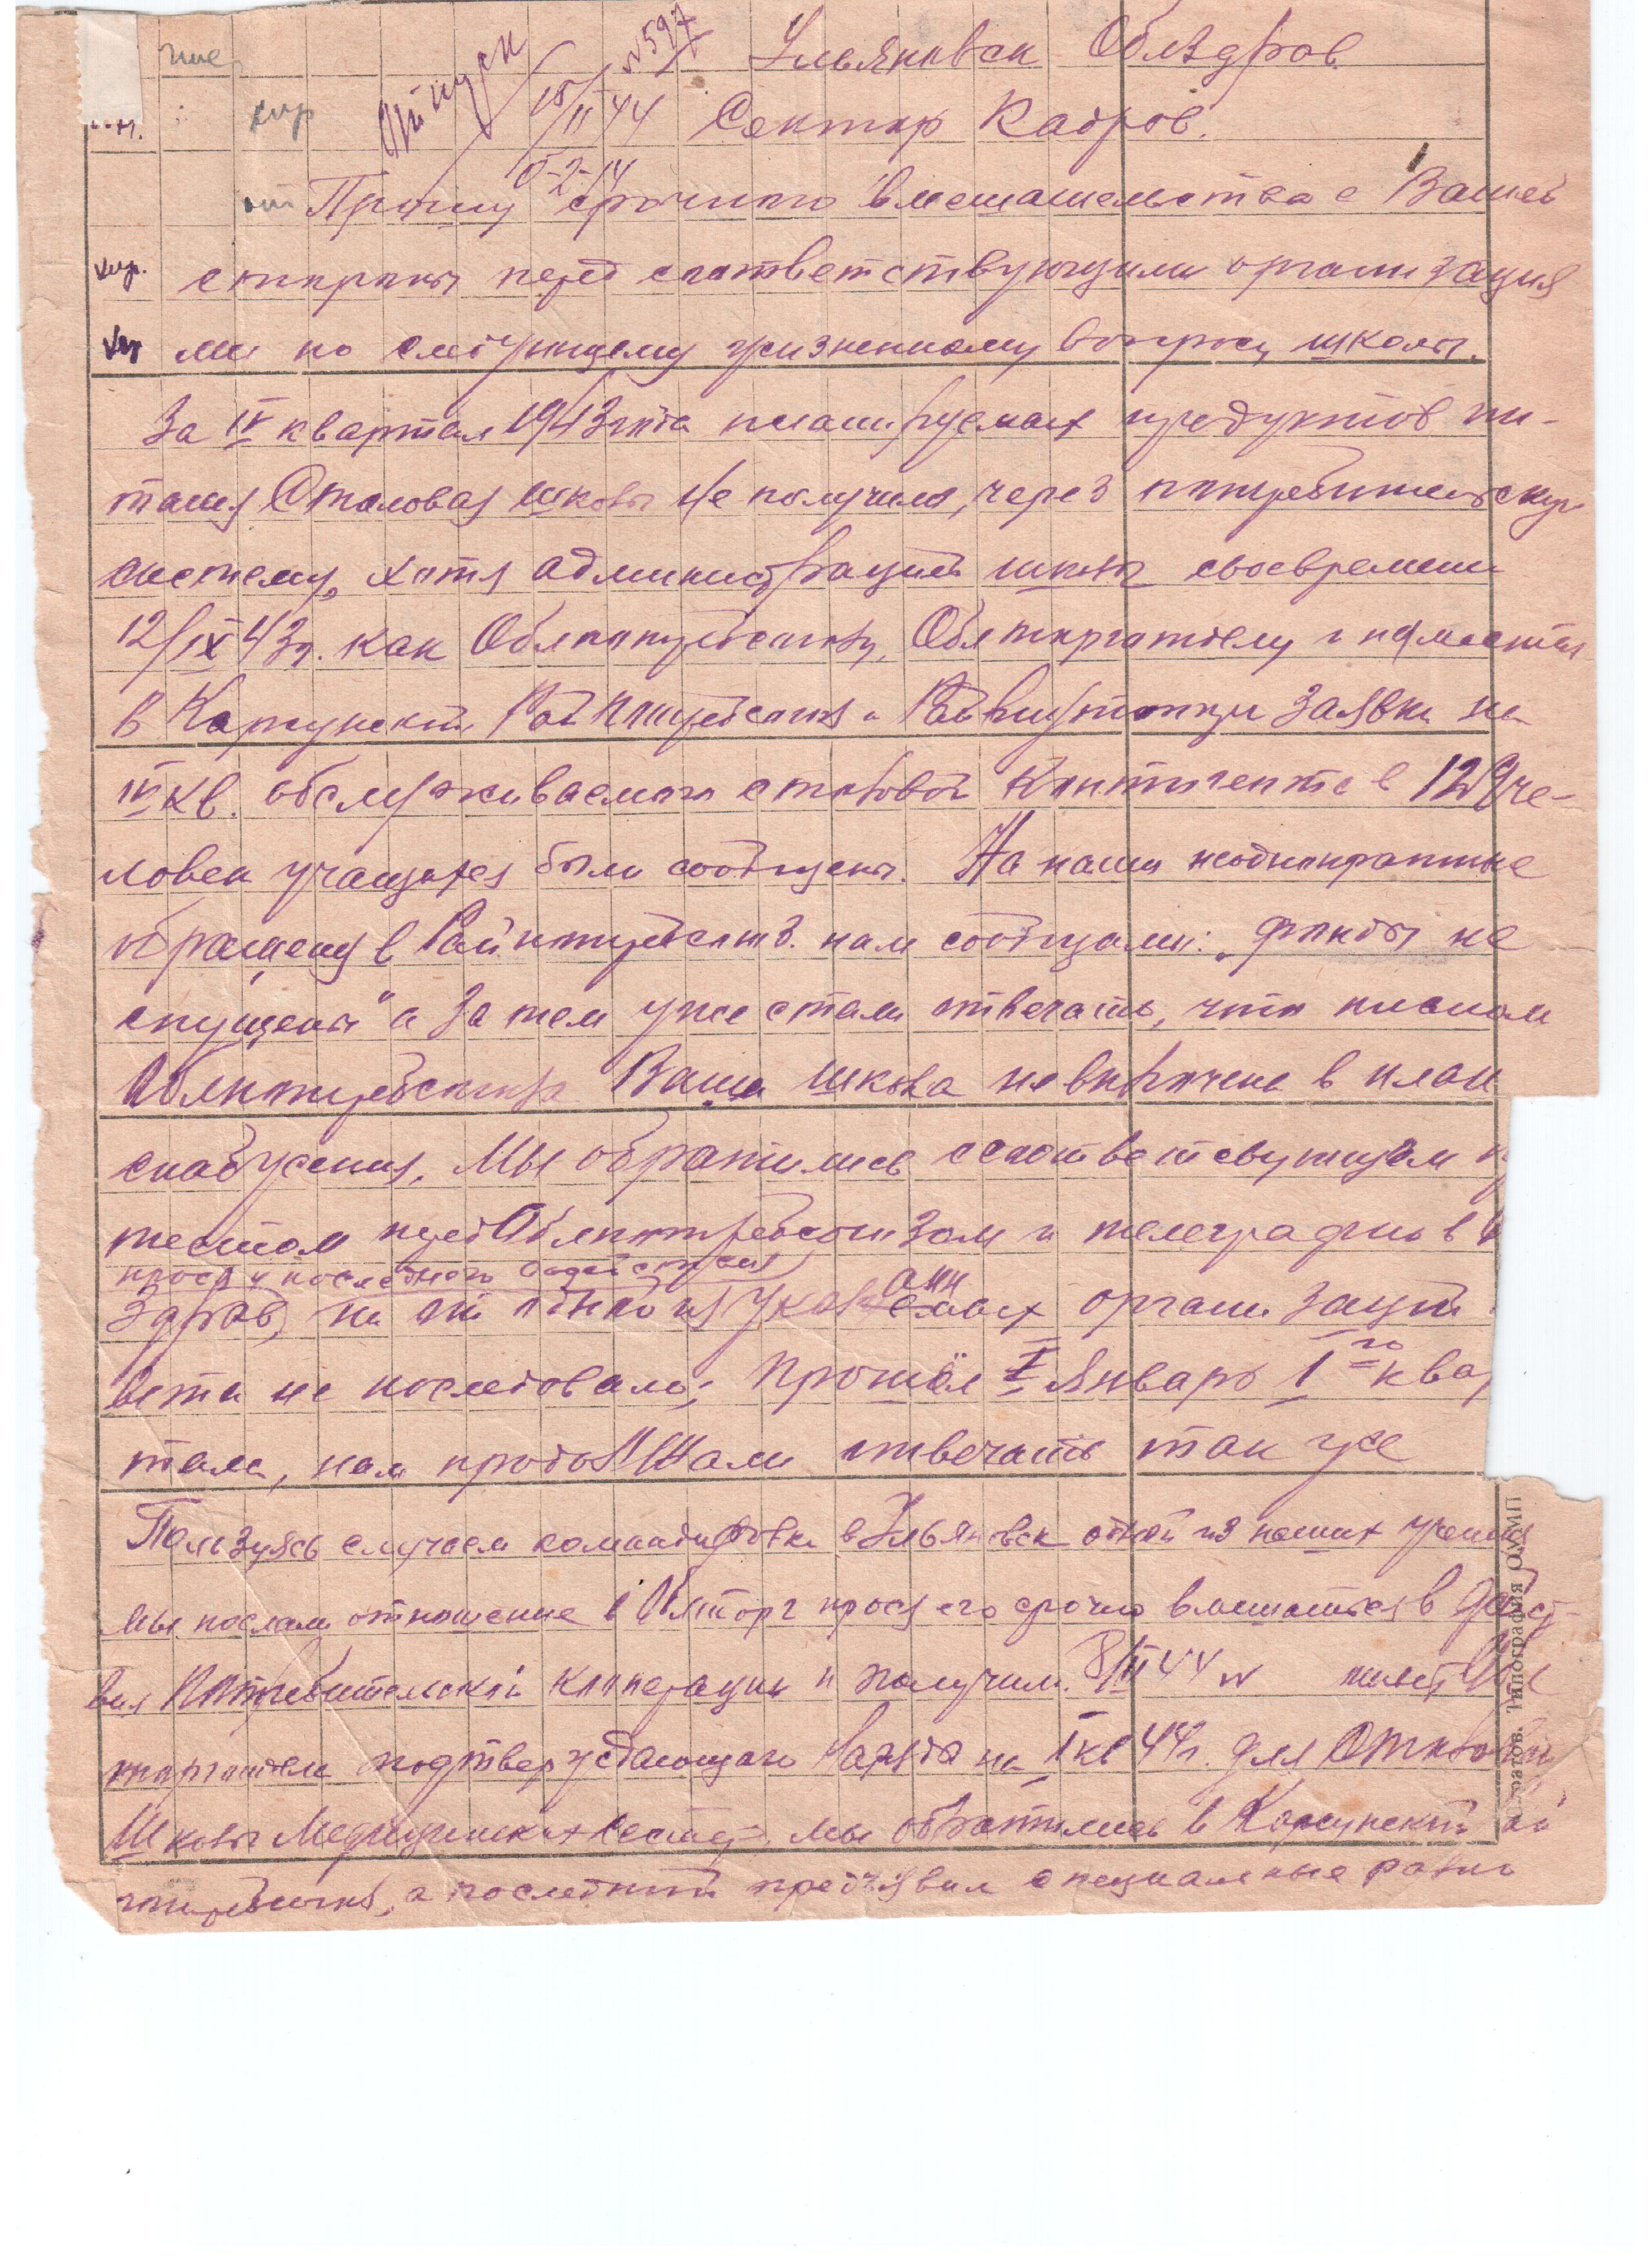 Отпуск
№597
15/II 44
Ульяновск Облздров
Сектор Кадров.
Прошу срочного вмешательства с Вашей
стороны перед соответствующими организация
ми по следующему жизненному вопросу школы.
За IV квартал 1943 года планируемых продуктов пи-
тания Столовая школы не получила, через потребительскую
систему, хотя администрацией школы своевременно
12/IX 43г. как Облпотребсоюзу, Облторготделу и на местах
в Карсунский Райпотребсоюз и Райвнуторг заявки на
IV кв. обслуживаемого столовой контингента в 129 че-
ловек учащихся были сообщены. На наши неоднократные
обращения в Райпотребсоюз. нам сообщали: „фонды не
спущены" а затем уже стали отвечать, что письмом
Облпотребсоюза Ваша школа не включена в план
снабжения. Мы обратились с соответствующим
тестом перед Облпотребсоюзом и телеграфно в
прося у последнего содействия
здрав, ни от одной из указанных организаций
вета не последовало; Прошёл I январь 1го квар
тала, нам продолжали отвечать так же
Пользуясь случаем командировки в Ульяновск одной из наших учениц
мы послали отношение в Облторг прося его срочно вмешаться в дейст-
вия Потребительской кооперации и получили 8/II 44 №
торготдела подтверждающего наряда на I кв 44г. для Столовой
Школы Медицинских Сестер, мы обратились в Карсунский рай
потребсоюз, а последний предъявил специальные
Типография ОМП